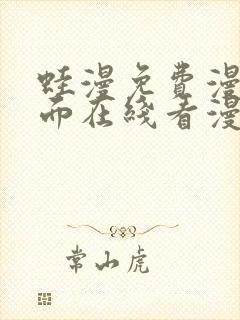 蛙漫免费漫
而在线看漫
常山虎